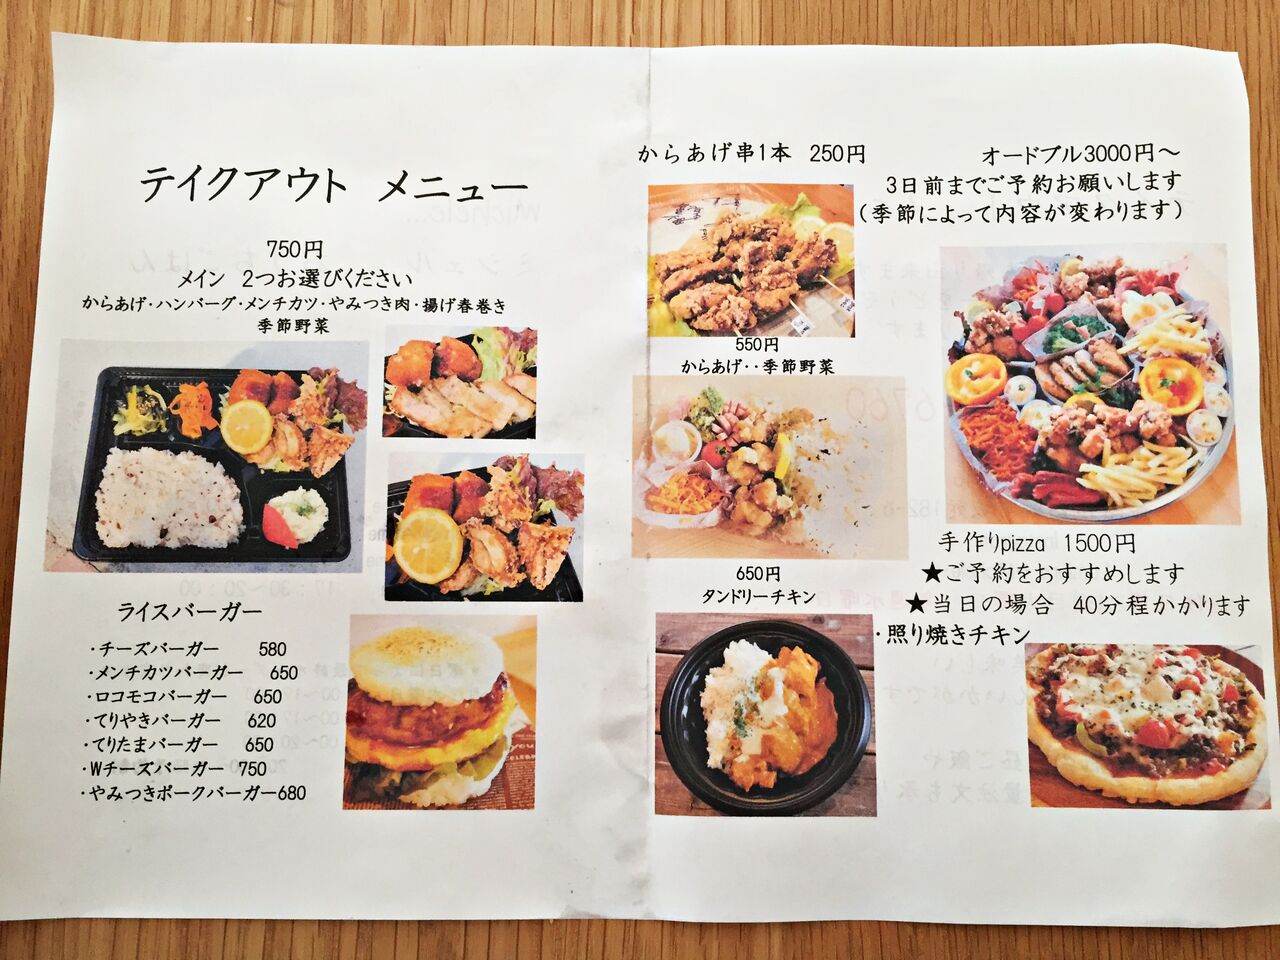 テイクアウト メニュー
750円
メイン 2つお選びください
からあげ・ハンバーグ・メンチカツ・やみつき肉・揚げ春巻き
季節野菜
ライスバーガー
・チーズバーガー 580
・メンチカツバーガー 650
・ロコモコバーガー 650
・てりやきバーガー 620
・てりたまバーガー 650
・Wチーズバーガー 750
・やみつきポークバーガー680
からあげ串1本 250円
550円
からあげ・・季節野菜
650円
タンドリーチキン
オードブル3000円～
3日前までご予約お願いします
(季節によって内容が変わります)
手作りpizza 1500円
★ご予約をおすすめします
★当日の場合 40分程かかります
・照り焼きチキン